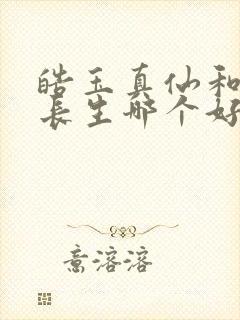 皓玉真仙和
长生哪个好
意溶溶